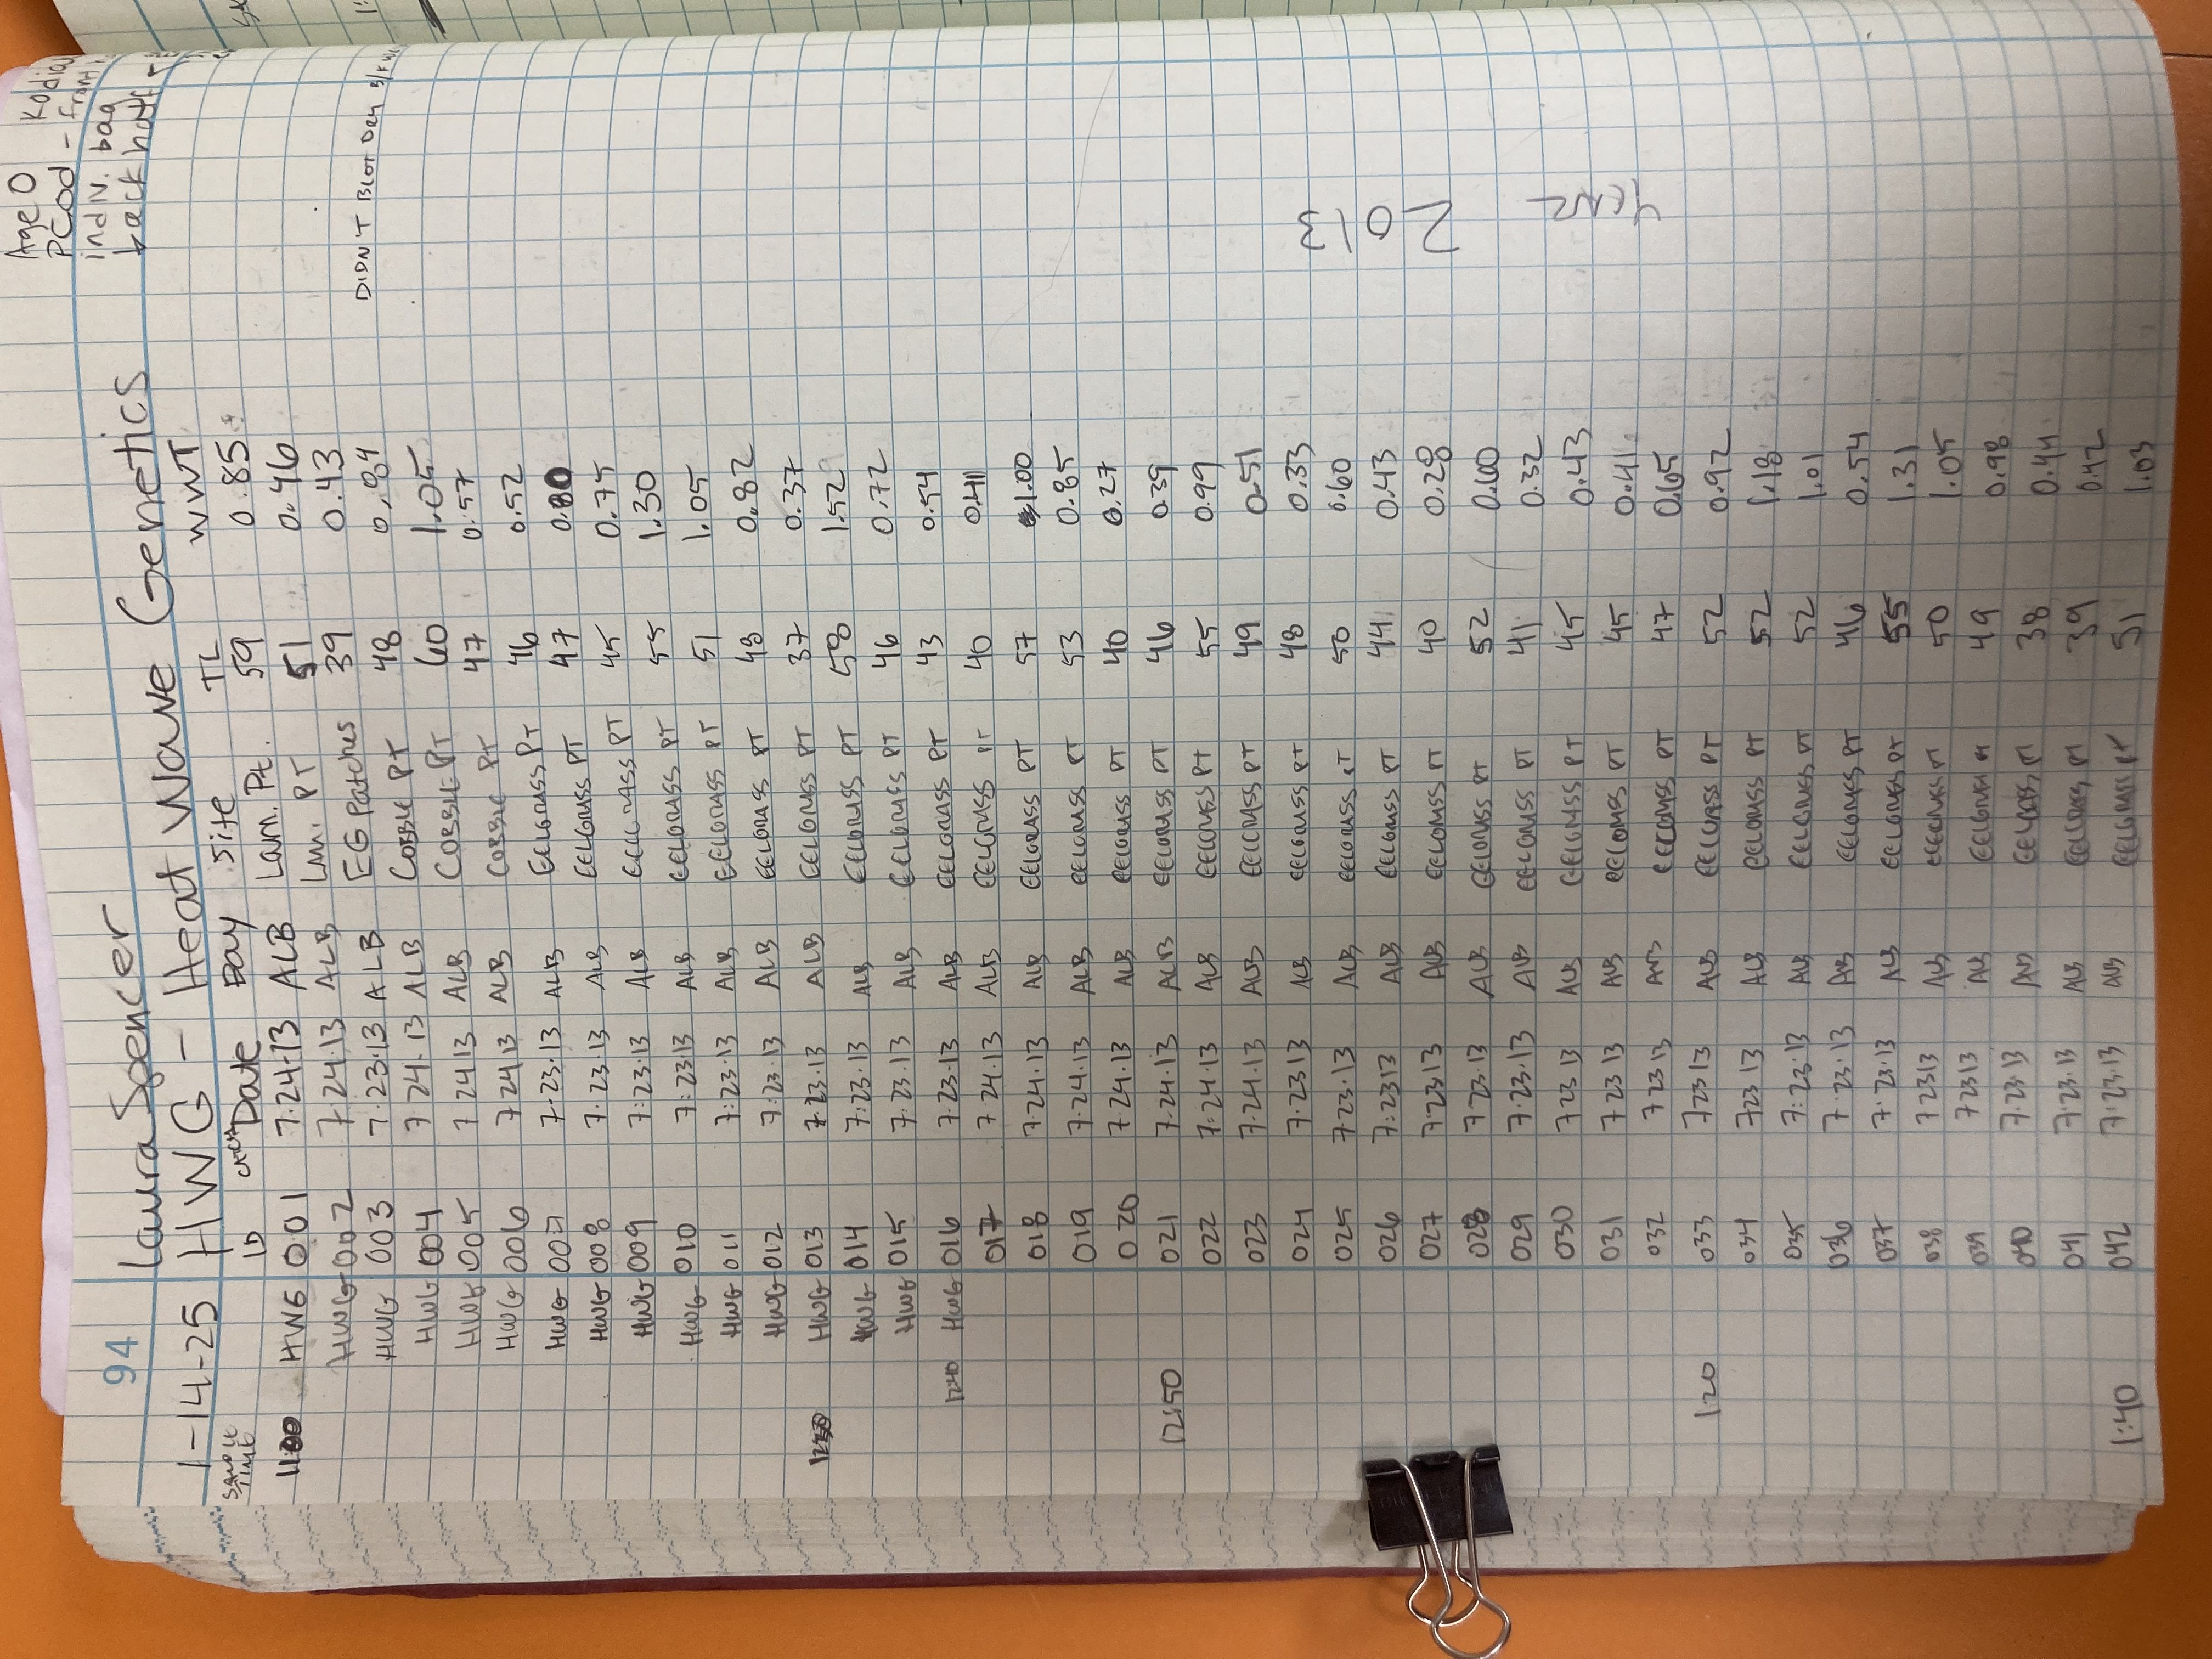 94 Laura Spencer
Age 0
PCod -
indiv. bag
back half
1-14-25 HWG - Heat Wave Genetics
SAMPLE TIME ID CATCH Date Bay Site TL WWT
1100 HWG 001 7.24-13 ALB Lam. Pt. 59 0.85
HWG 002 7.24.13 ALB Lam. PT 51 0.46
HWG 003 7.23.13 ALB EG patches 39 0.43
HWG 004 7.24.13 ALB COBBLE PT 48 0.84 DIDN'T BLOT DRY
HWG 005 7 24 13 ALB COBBLE PT 60 1.05
HWG 006 7 24 13 ALB COBBLE PT 47 0.57
HWG 007 7-23.13 ALB EELGRASS PT 46 0.52
HWG 008 7.23.13 ALB EELGRASS PT 47 0.80
HWG 009 7:23.13 ALB EELGRASS PT 45 0.75
HWG 010 7:23.13 ALB EELGRASS PT 55 1.30
HWG 011 7:23.13 ALB EELGRASS PT 51 1.05
HWG 012 7:23.13 ALB EELGRASS PT 48 0.82
1230 HWG 013 7.23.13 ALB EELGRASS PT 37 0.37
HWG 014 7:23.13 ALB EELGRASS PT 58 1.52
HWG 015 7.23.13 ALB EELGRASS PT 46 0.72
1240 HWG 016 7.23.13 ALB EELGRASS PT 43 0.54
017 7 24.13 ALB EELGRASS PT 40 0.41
018 7.24.13 ALB EELGRASS PT 57 1.00
019 7.24.13 ALB EELGRASS PT 53 0.85
020 7.24.13 ALB EELGRASS PT 40 0.27
12:50 021 7.24.13 ALB EELGRASS PT 46 0.39
022 7.24.13 ALB EELGRASS PT 55 0.99
023 7.24.13 ALB EELGRASS PT 49 0.51
024 7.23 13 ALB EELGRASS PT 48 0.33
025 7 23.13 ALB EELGRASS PT 50 0.60
026 7:23 13 ALB EELGRASS PT 44 0.43
027 7 23 13 ALB EELGRASS PT 40 0.28
028 7 23.13 ALB EELGRASS PT 52 0.60
029 7.23.13 ALB EELGRASS PT 41 0.32
030 7 23 13 ALB EELGRASS PT 45 0.43
031 7 23 13 ALB EELGRASS PT 45 0.41
032 7 23 13 ALB EELGRASS PT 47 0.65
1:20 033 7 23 13 ALB EELGRASS PT 52 0.92
034 7 23 13 ALB EELGRASS PT 52 1.18
035 7:23.13 ALB EELGRASS PT 52 1.01
036 7.23.13 ALB EELGRASS PT 46 0.54
037 7.23.13 ALB EELGRASS PT 55 1.31
038 7 23 13 ALB EELGRASS PT 50 1.05
039 7 23 13 ALB EELGRASS PT 49 0.98
040 7.23.13 ALB EELGRASS PT 38 0.44
041 7.23.13 ALB EELGRASS PT 39 0.42
1:40 042 7.23.13 ALB EELGRASS PT 51 1.03
YEAR 2013